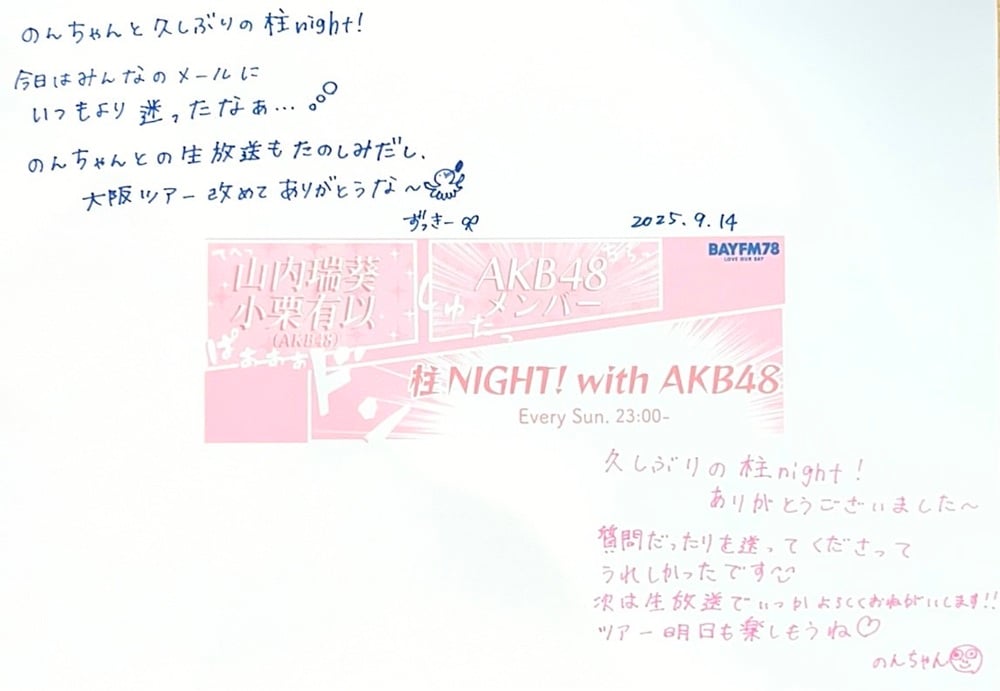 のんちゃんと久しぶりの柱night!
今日はみんなのメールに
いつもより迷ったなぁ...
のんちゃんとの生放送もたのしみだし、
大阪ツアー改めてありがとうな〜
ずっきー
2025.9.14
てへっ
山内瑞葵
小栗有以
(AKB48)
ぱぁぁぁぁ
AKB48
メンバー
BAYFM78
LOVE OUR BAY
柱NIGHT! with AKB48
Every Sun. 23:00-
久しぶりの柱night!
ありがとうございました〜
質問だったりを送ってくださって
うれしかったです
次は生放送でいつかよろしくおねがいします!!
ツアー明日も楽しもうね♡
のんちゃん